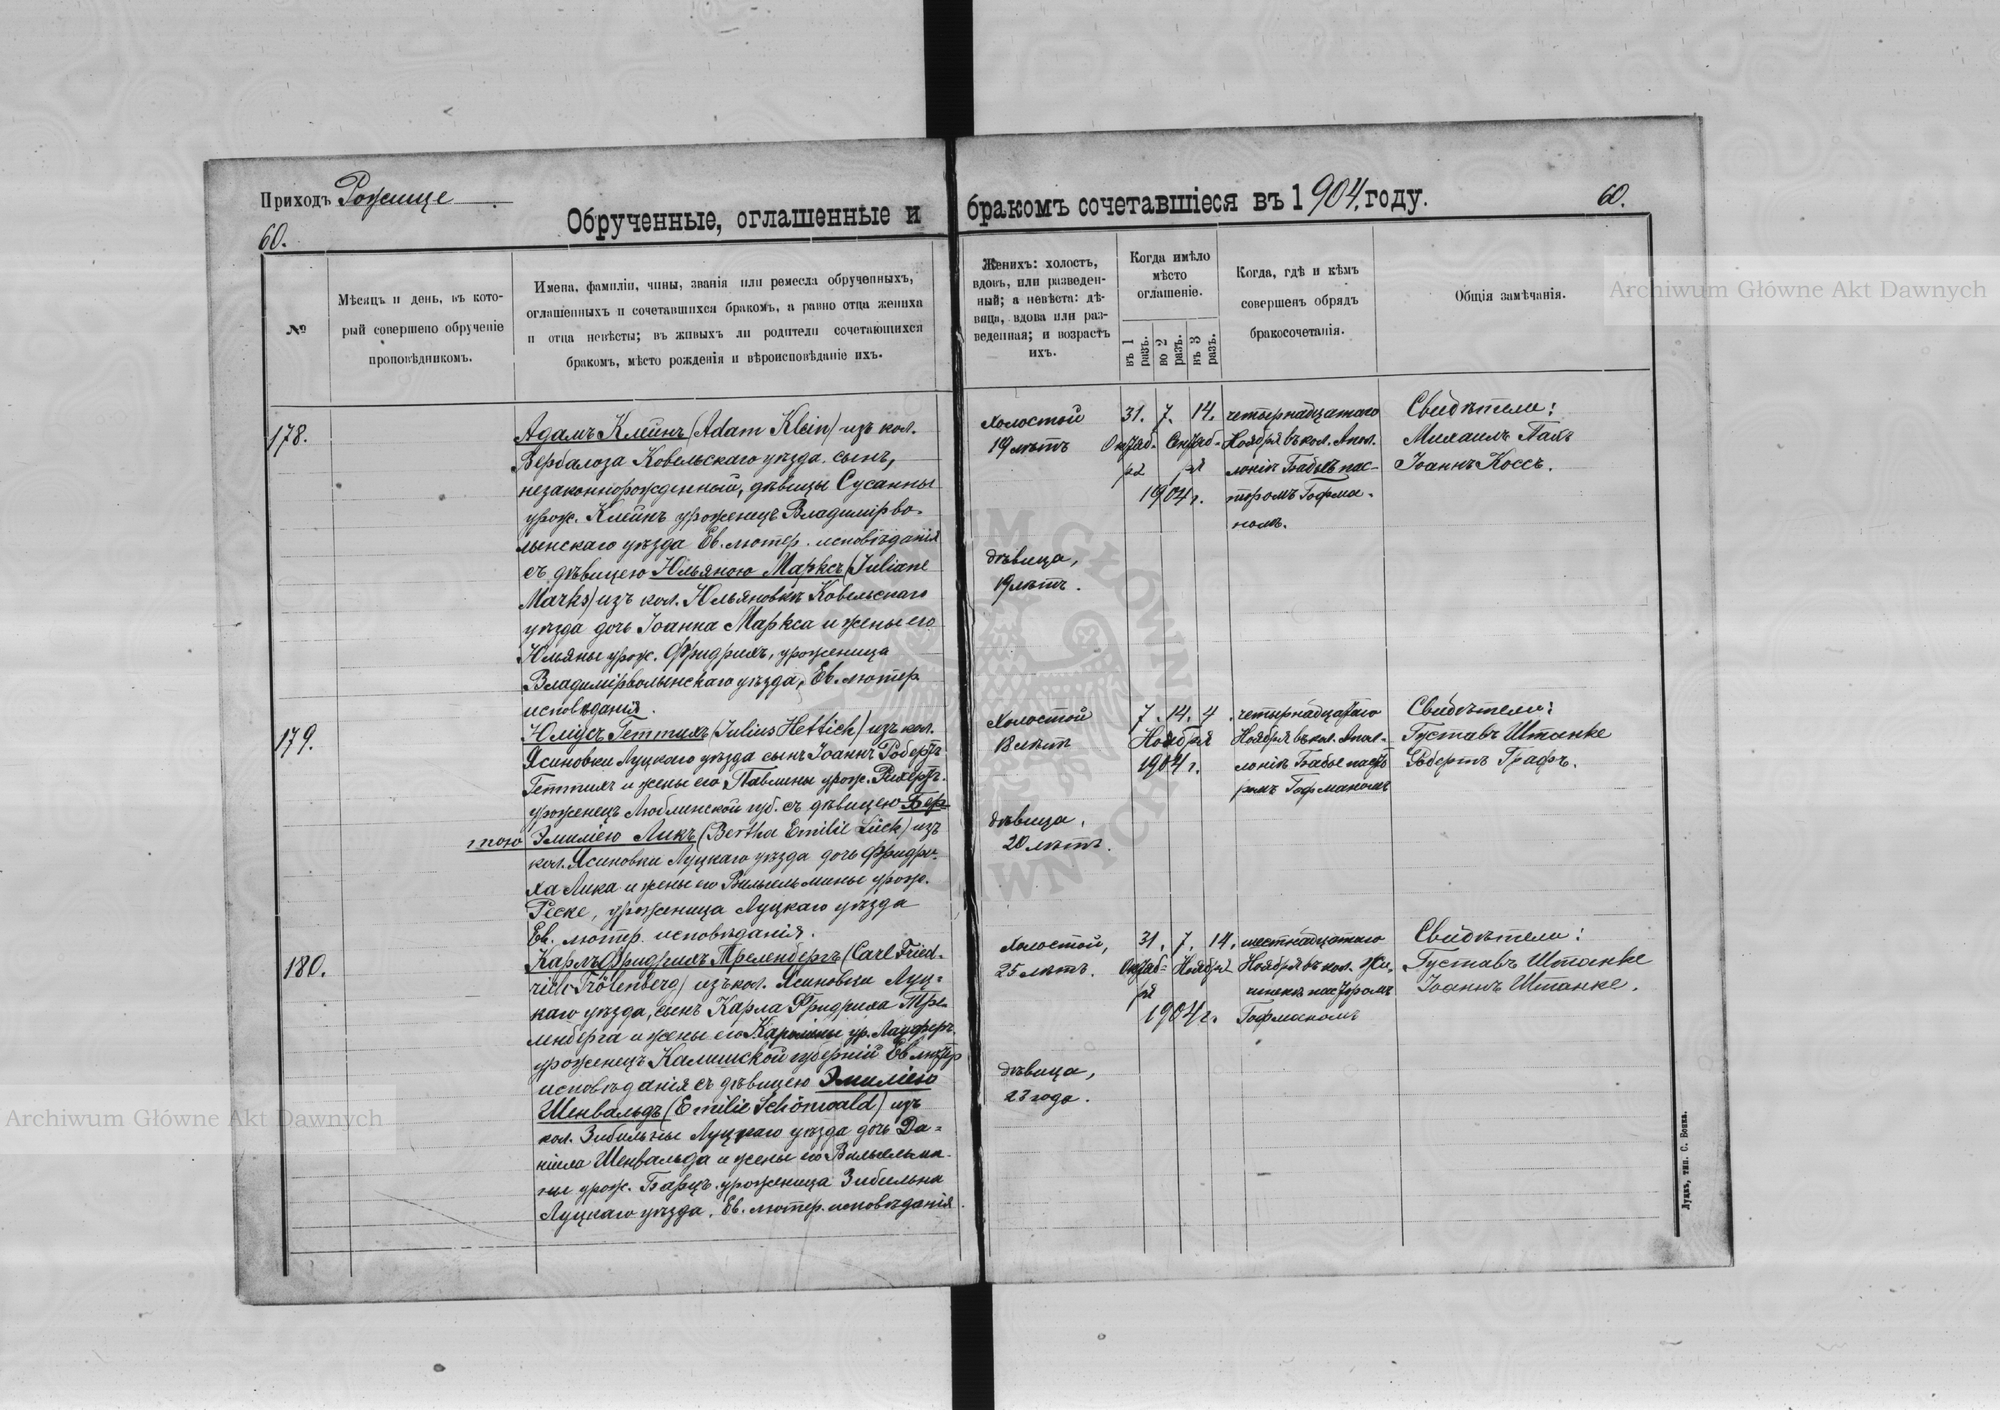 Приходъ Рожище
60.
Обрученные, оглашенные и
бракомъ сочетавшіеся въ 1904 году.
60.
№
Мѣсяцъ и день, въ кото-
рый совершено обрученіе
проповѣдникомъ.
Имена, фамиліи, чины, званія или ремесла обрученныхъ,
оглашенныхъ и сочетавшихся бракомъ, а равно отца жениха
и отца невѣсты; въ живыхъ ли родители сочетающихся
бракомъ, мѣсто рожденія и вѣроисповѣданіе ихъ.
Женихъ: холостъ,
вдовъ, или разведен-
ный; а невѣста: дѣ-
вица, вдова или раз-
веденная; и возрастъ
ихъ.
Когда имѣло
мѣсто
оглашеніе.
въ 1 разъ.
во 2 разъ.
въ 3 разъ.
Когда, гдѣ и кѣмъ
совершенъ обрядъ
бракосочетанія.
Общія замѣчанія.
178.
Адамъ Клейнъ (Adam Klein) изъ кол.
Вербалоза Ковельскаго уѣзда сынъ,
незаконнорожденный, дѣвицы Сусанны
урож. Клейнъ уроженецъ Владимірво-
лынскаго уѣзда Ев. лютер. исповѣданія
съ дѣвицею Юльяною Марксъ (Juliane
Marks) изъ кол. Юльяновки Ковельскаго
уѣзда дочь Іоанна Маркса и жены его
Юльяны урож. Фридрихъ, уроженица
Владимірволынскаго уѣзда, Ев. лютер
исповѣданія.
холостой
19 лѣтъ
дѣвица,
19 лѣтъ.
31. 7. 14.
Октяб- Октяб-
ря ря
1904 г.
четырнадцатаго
Ноября въ кол. Апол.
лонія Бабье пас-
торомъ Гофма-
номъ.
Свидѣтели:
Михаилъ Пахъ
Іоаннъ Коссъ.
179.
Юліусъ Геттихъ (Julius Hettich) изъ кол.
Ясиновки Луцкаго уѣзда сынъ Іоаннъ Робертъ
Геттихъ и жены его Павлины урож. Рихертъ.
уроженецъ Люблинской губ. съ дѣвицею Бер-
тою Эмиліею Ликъ (Bertha Emilie Lück) изъ
кол. Ясиновки Луцкаго уѣзда дочь Фридри-
ха Лика и жены его Вильгельмины урож.
Реске, уроженица Луцкаго уѣзда
Ев. лютер. исповѣданія.
Холостой
18 лѣтъ
дѣвица,
20 лѣтъ.
7. 14. 4
Ноября
1904 г.
четырнадцатаго
Ноября въ кол. Апол-
лонія Бабье пасто
ромъ Гофманомъ
Свидѣтели:
Густавъ Штанке
Робертъ Графъ.
180.
Карлъ Фридрихъ Треленбергъ (Carl Fried-
rich Trölenberg) изъ кол. Ясиновки Луц-
каго уѣзда, сынъ Карла Фридриха Тре-
ленберга и жены его Каролины ур. Лауферъ.
уроженецъ Калишской губерніи Ев лютер
исповѣданія съ дѣвицею Эмиліею
Шенвальдъ (Emilie Schönwald) изъ
кол. Зибильны Луцкаго уѣзда дочь Да-
ніила Шенвальда и жены его Вильгельми-
ны урож. Барцъ. уроженица Зибильна
Луцкаго уѣзда. Ев. лютер. исповѣданія.
Холостой,
25 лѣтъ.
дѣвица,
23 года.
31. 7. 14.
Октяб- Ноября
ря
1904 г.
шестнадцатаго
Ноября въ кол.
пасторомъ
Гофманомъ
Свидѣтели:
Густавъ Штанке
Іоаннъ Штанке.
Луцкъ, тип. С. Бонка.
Archiwum Główne Akt Dawnych
Archiwum Główne Akt Dawnych